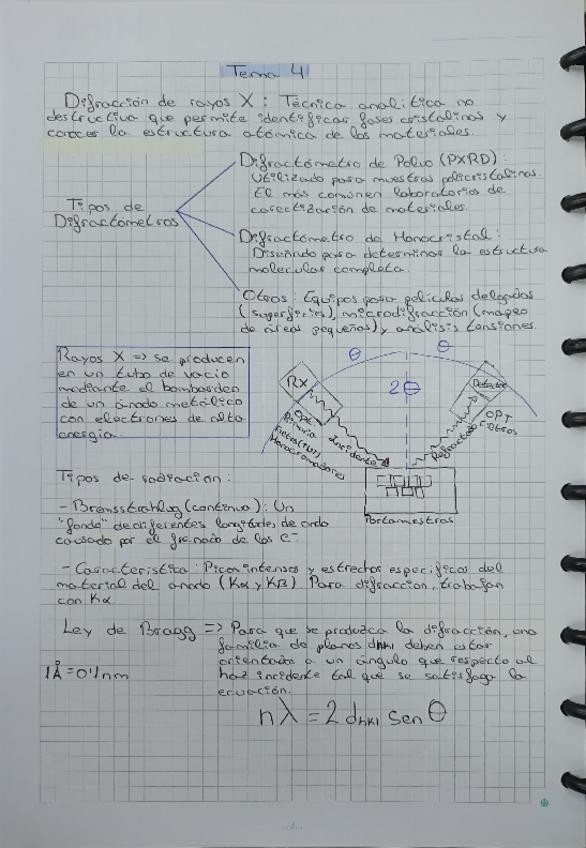 Tema 4
Difracción de rayos X: Técnica analítica no
destructiva que permite identificar fases cristalinas y
conocer la estructura atómica de los materiales.
Tipos de
Difractómetros
Difractómetro de Polvo (PXRD):
Utilizado para muestras policristalinas.
El más común en laboratorios de
carectización de materiales.
Difractómetro de Monocristal:
Diseñado para determinar la estructura
molecular completa.
Otros: Equipos para películas delegadas
(superficies), microdifracción (mapeo
de áreas pequeñas) y análisis tensiones.
Rayos X => se producen
en un tubo de vacío
mediante el bombardeo
de un ánodo metálico
con electrones de alta
energía.
θ
θ
2θ
RX
Detector
Opt
Primaria
Monocromadores
Incidente
Refractado
OPT
Filtros
Portamestras
Tipos de radiacion:
- Bremsstrahlug (continuo): Un
"fondo" de diferentes longitudes de onda
causado por el frenado de los e-
- Caracteristica: Picos intensos y estrechos especificos del
material del ánodo (Kα y Kβ). Para difraccion, trabajan
con Kα
Ley de Bragg => Para que se produzca la difracción, una
familia de planos dhkl deben estar
orientados a un ángulo que respecto al
haz incidente tal que se satisfaga la
ecuación.
1Å = 0'1 nm
nλ = 2 dhkl sen θ